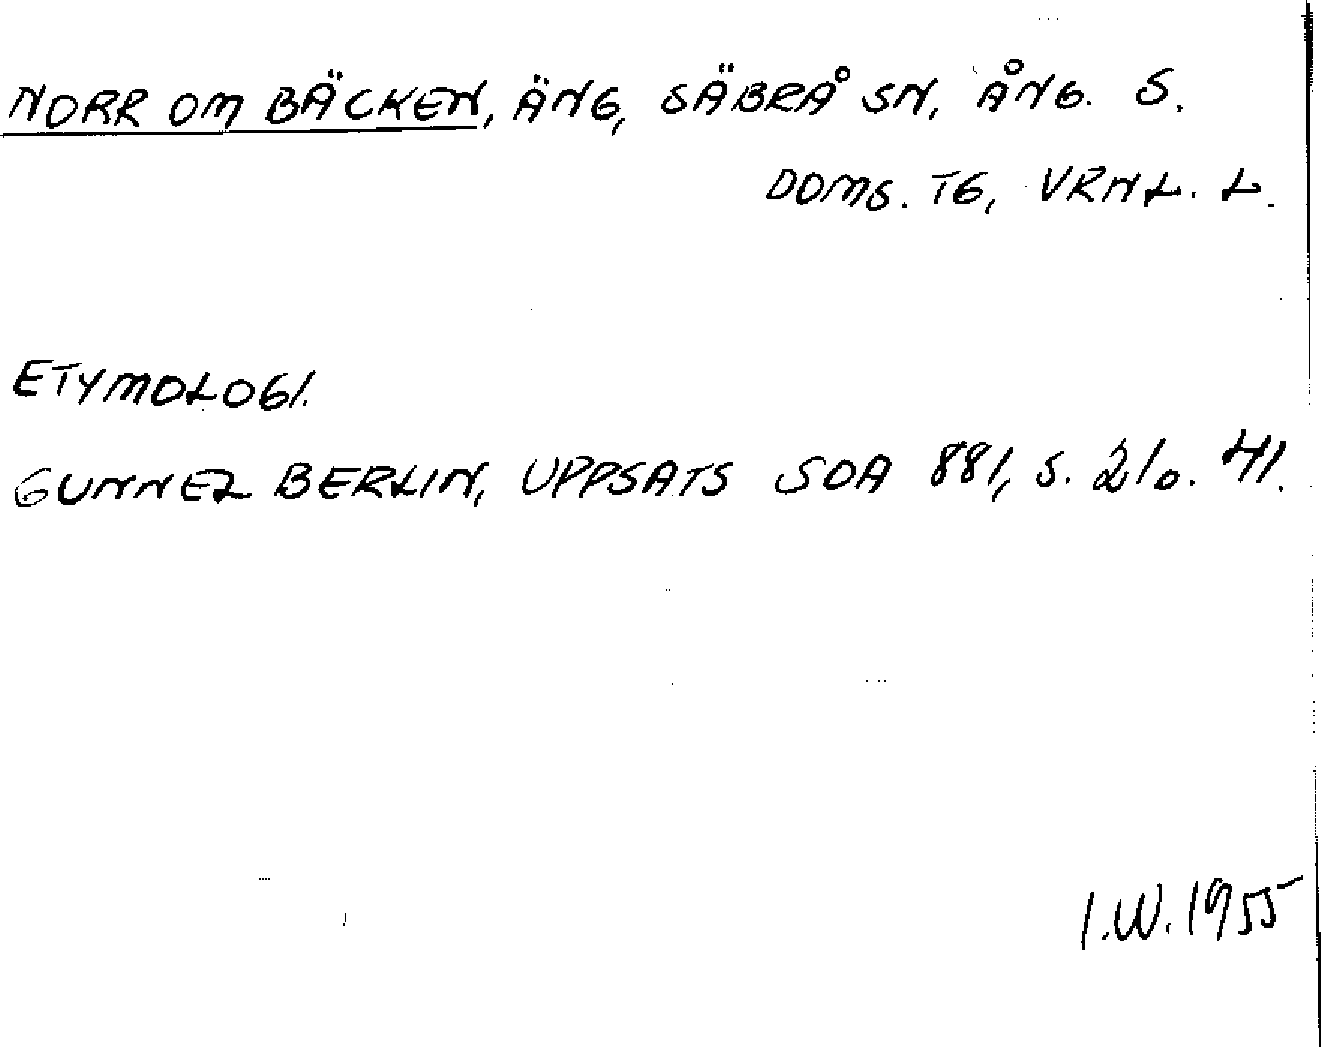 NORR OM BÄCKEN, ÄNG, SÄBRÅ SN, ÅNG. S.
DOMS. TG, VRNL. L.
ETYMOLOGI.
GUNNEL BERLIN, UPPSATS SOA 881, S. 21 o. 41.
I.W. 1955